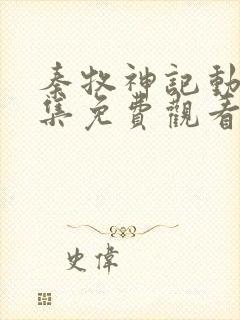 秦牧神記動
集免費觀看
史偉